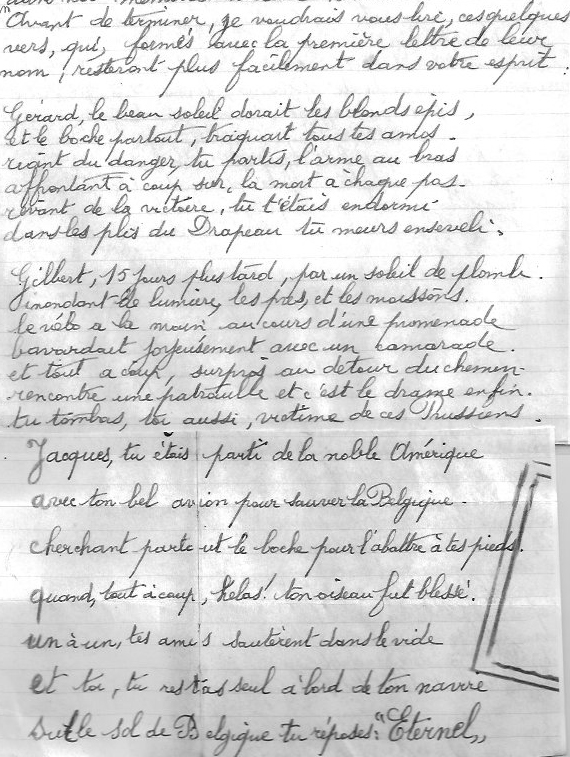 "Avant de terminer, je voudrais vous lire, ces quelques
vers, qui, formés avec la première lettre de leur
nom, resteront plus facilement dans votre esprit.
Gérard, le beau soleil dorait les blonds épis,
et le boche partout, traquait tous tes amis.
riant du danger, tu partis, l'arme au bras
affrontant à coup sur, la mort à chaque pas.
rêvant de la victoire, tu t'étais endormi
dans les plis du Drapeau tu meurs enseveli.
Gilbert, 15 jours plus tard, par un soleil de plomb.
inondant de lumière, les prés, et les moissons.
le vélo a la main au cours d'une promenade
bavardait joyeusement avec un camarade.
et tout a coup, surpris au détour du chemin-
rencontre une patrouille et c'est le drame enfin.
tu tombas, toi aussi, victime de ces Prussiens.
Jacques, tu étais parti de la noble Amérique
avec ton bel avion pour sauver la Belgique.
cherchant partout le boche pour l'abattre à tes pieds.
quand, tout à coup, hélas! ton oiseau fut blessé.
un à un, tes amis sautèrent dans le vide
et toi, tu restas seul à bord de ton navire
sur le sol de Belgique tu réposes: "Eternel„